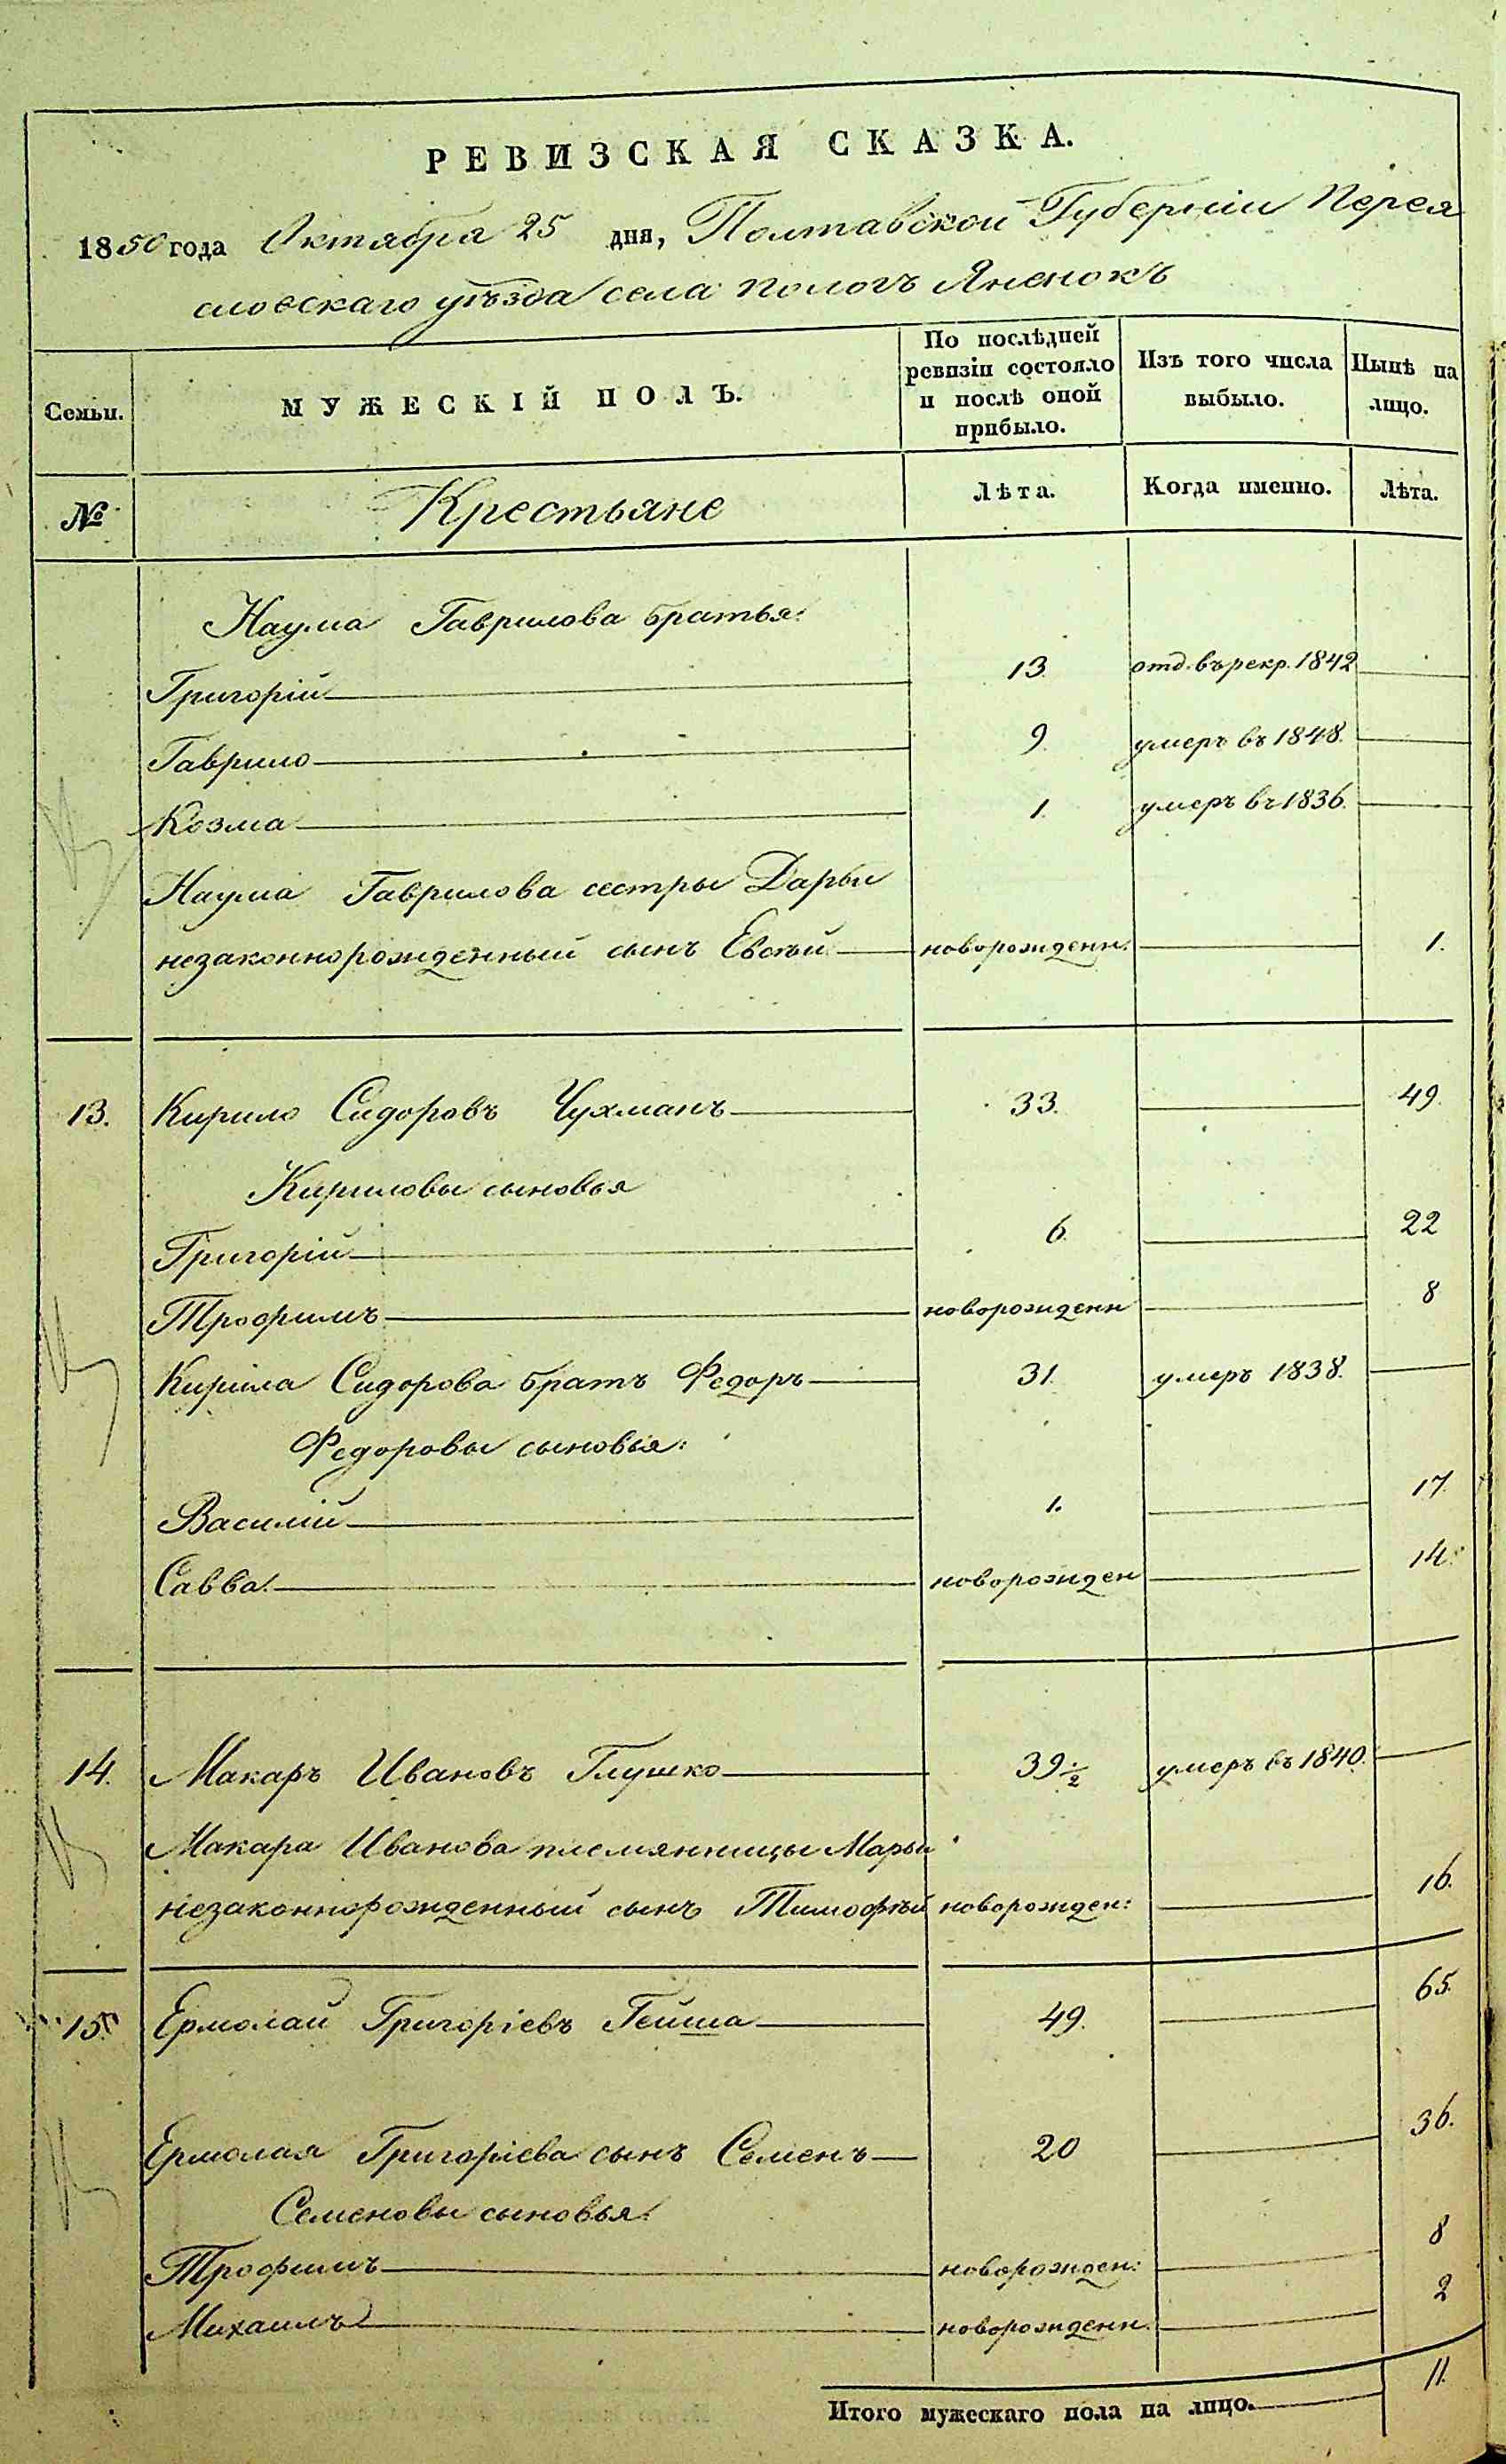 РЕВИЗСКАЯ СКАЗКА.
1850 года Октября 25 дня, Полтавской Губерніи Перея
словскаго уѣзда села Пологъ Яненокъ
Семьи. МУЖЕСКІЙ ПОЛЪ. По послѣдней ревизіи состояло и послѣ оной прибыло. Изъ того числа выбыло. Нынѣ на лицо.
№ Крестьяне Лѣта. Когда именно. Лѣта.
Наума Гаврилова братья:
Григорій 13 отд. въ рекр. 1842
Гаврило 9. умеръ въ 1848.
Козма 1. умеръ въ 1836.
Наума Гаврилова сестры Дарьи
незаконнорожденный сынъ Евсѣй новорожденн. 1.
13. Кирило Сидоровъ Чухманъ 33. 49.
Кириловы сыновья
Григорій 6. 22
Трофимъ новорожденн 8
Кирила Сидорова братъ Федоръ 31. умеръ 1838.
Федоровы сыновья:
Василій 1. 17.
Савва. новорожден 14.
14. Макаръ Ивановъ Глушко 39 1/2 умеръ въ 1840.
Макара Иванова племянницы Марьи
незаконнорожденный сынъ Тимофѣй новорожден: 16.
15. Ермолай Григоріевъ Гейша 49. 65.
Ермолая Григоріева сынъ Семенъ 20 36.
Семеновы сыновья:
Трофимъ новорожден: 8
Михаилъ новорожденн. 2
Итого мужескаго пола на лицо. 11.